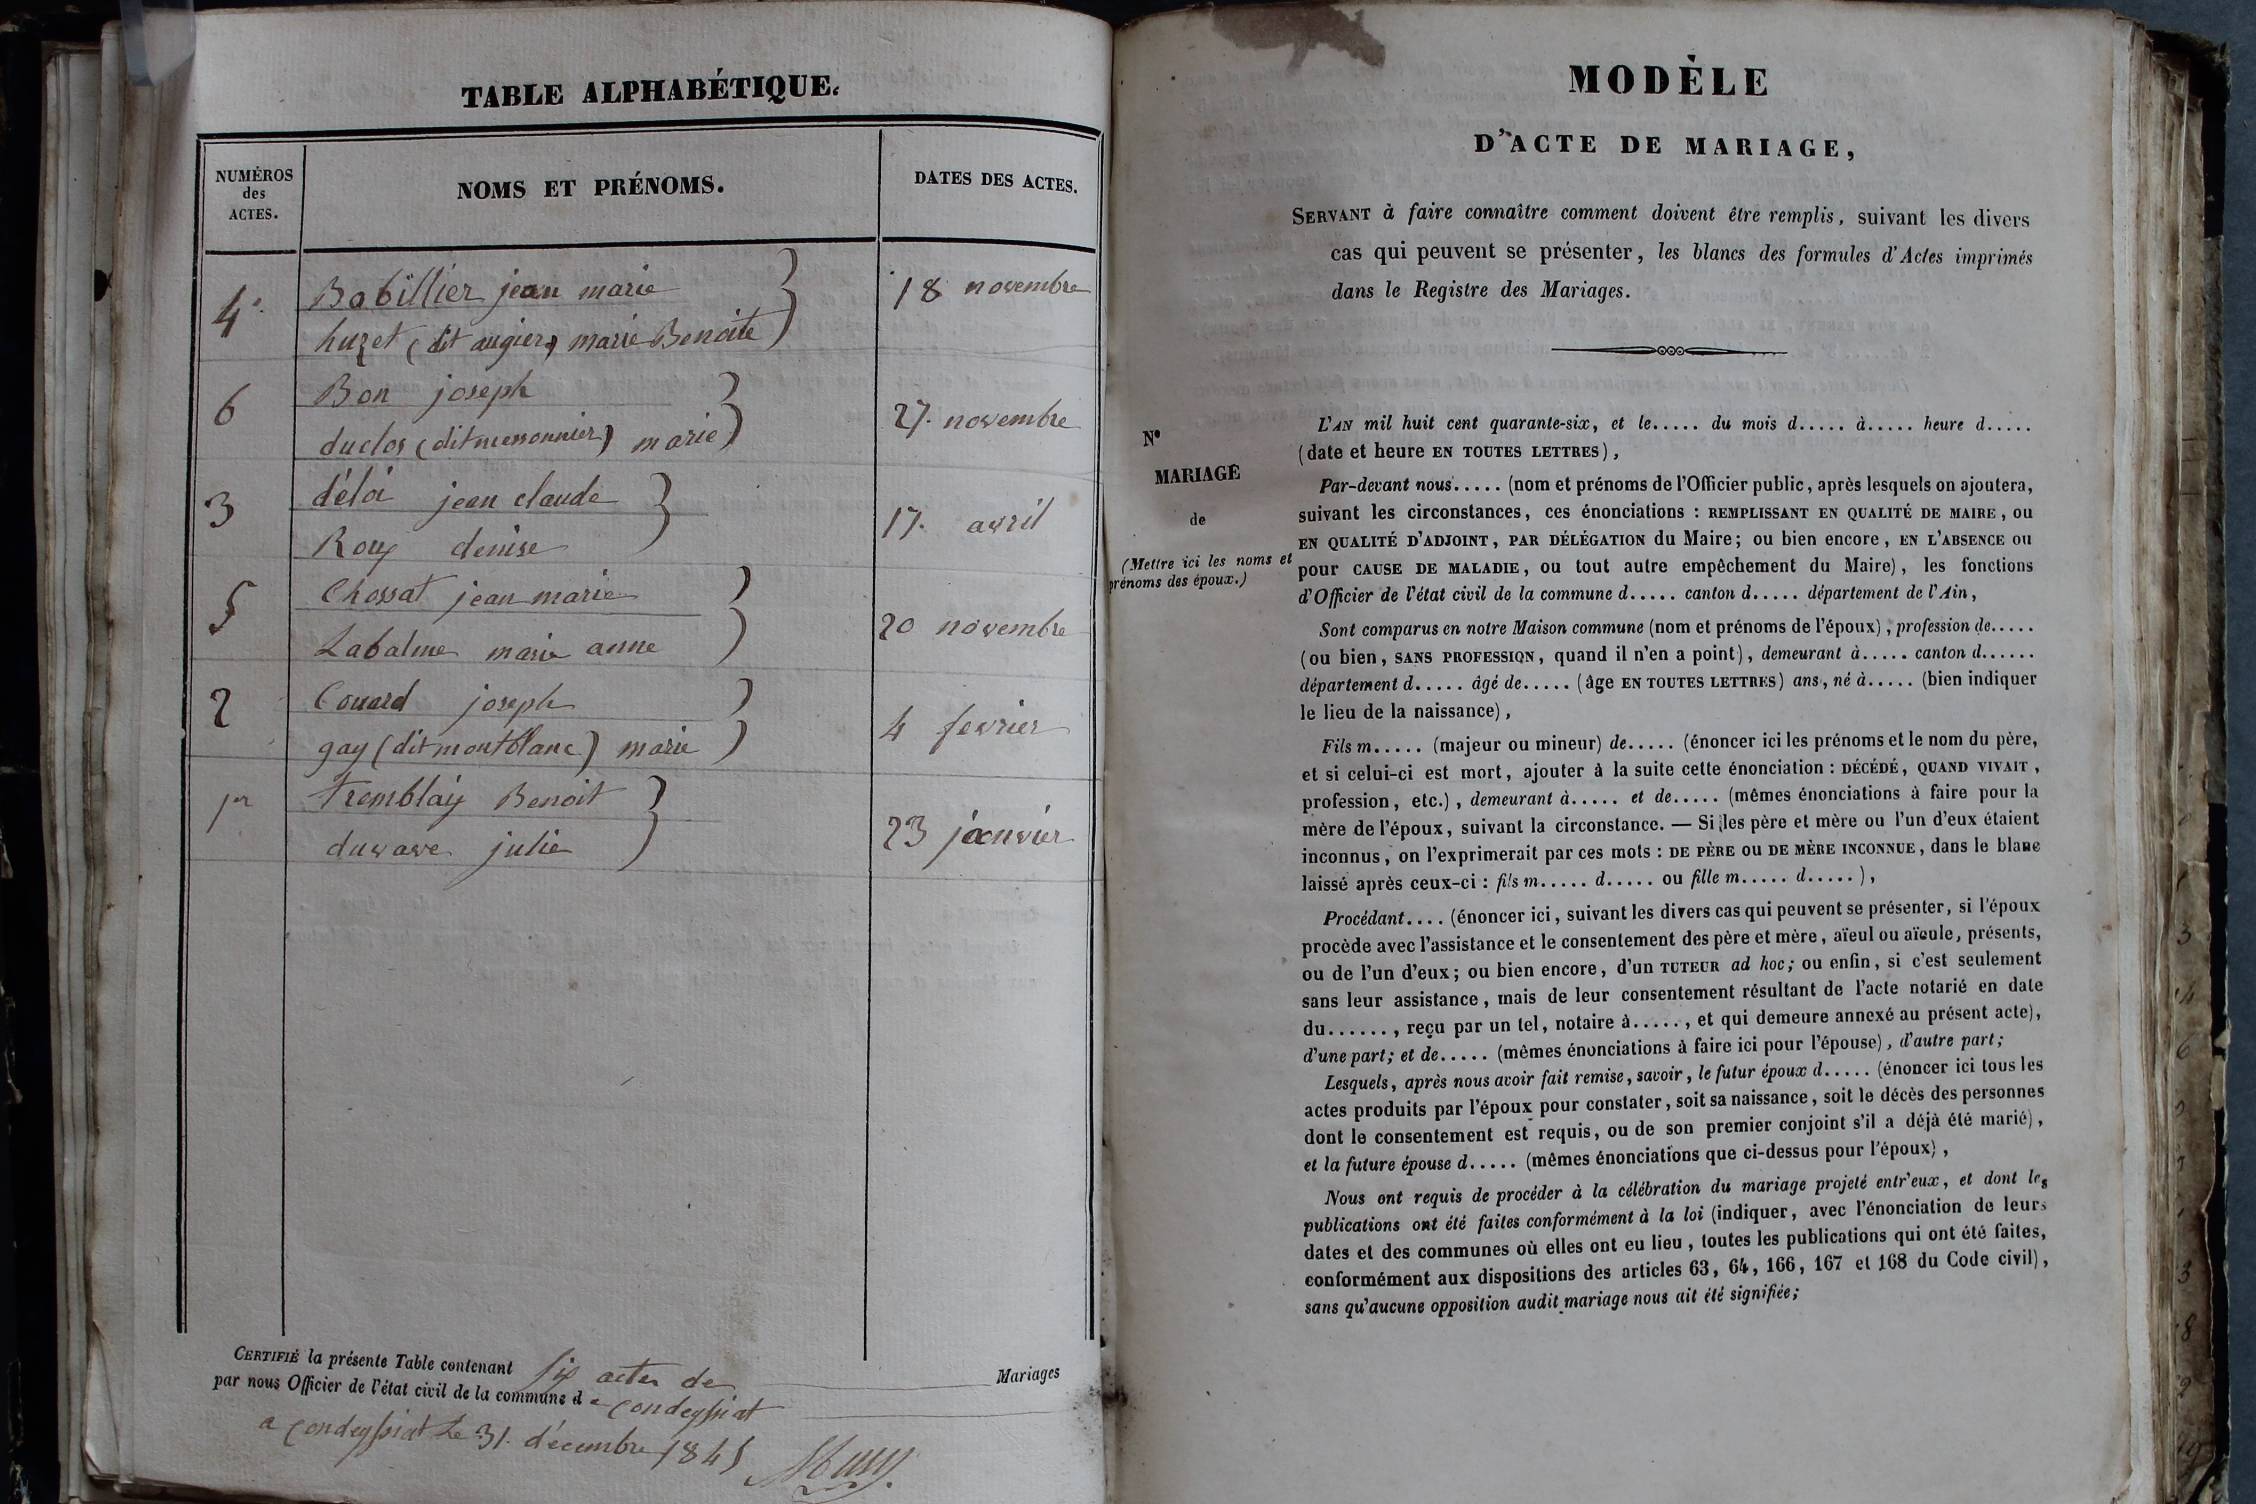 TABLE ALPHABÉTIQUE.
NUMÉROS des ACTES.
NOMS ET PRÉNOMS.
DATES DES ACTES.
4. Babillier jean marie 18 novembre
huzet (dit augier) marie Benoite
6 Bon joseph 27. novembre
duclos (dit messonnier) marie
3 déloi jean claude 17. avril
Roux denise
5 Chossat jean marie 20 novembre
Labalme marie anne
2 Couard joseph 4 fevrier
gay (dit montblanc) marie
1er tremblay Benoit 23 janvier
duvave julie
CERTIFIÉ la présente Table contenant six actes de Mariages
par nous Officier de l'état civil de la commune de condeyssiat
a condeyssiat Le 31. décembre 1845
MODÈLE
D'ACTE DE MARIAGE,
SERVANT à faire connaître comment doivent être remplis, suivant les divers
cas qui peuvent se présenter, les blancs des formules d'Actes imprimés
dans le Registre des Mariages.
N°
MARIAGE
de
(Mettre ici les noms et
prénoms des époux.)
L'AN mil huit cent quarante-six, et le..... du mois d..... à..... heure d.....
(date et heure EN TOUTES LETTRES),
Par-devant nous..... (nom et prénoms de l'Officier public, après lesquels on ajoutera,
suivant les circonstances, ces énonciations : REMPLISSANT EN QUALITÉ DE MAIRE, ou
EN QUALITÉ D'ADJOINT, PAR DÉLÉGATION du Maire; ou bien encore, EN L'ABSENCE ou
pour CAUSE DE MALADIE, ou tout autre empêchement du Maire), les fonctions
d'Officier de l'état civil de la commune d..... canton d..... département de l'Ain,
Sont comparus en notre Maison commune (nom et prénoms de l'époux), profession de.....
(ou bien, SANS PROFESSION, quand il n'en a point), demeurant à..... canton d......
département d..... âgé de..... (âge EN TOUTES LETTRES) ans, né à..... (bien indiquer
le lieu de la naissance),
Fils m..... (majeur ou mineur) de..... (énoncer ici les prénoms et le nom du père,
et si celui-ci est mort, ajouter à la suite cette énonciation : DÉCÉDÉ, QUAND VIVAIT,
profession, etc.), demeurant à..... et de..... (mêmes énonciations à faire pour la
mère de l'époux, suivant la circonstance. — Si les père et mère ou l'un d'eux étaient
inconnus, on l'exprimerait par ces mots : DE PÈRE ou DE MÈRE INCONNUE, dans le blanc
laissé après ceux-ci : fils m..... d..... ou fille m..... d.....),
Procédant.... (énoncer ici, suivant les divers cas qui peuvent se présenter, si l'époux
procède avec l'assistance et le consentement des père et mère, aïeul ou aïeule, présents,
ou de l'un d'eux; ou bien encore, d'un TUTEUR ad hoc; ou enfin, si c'est seulement
sans leur assistance, mais de leur consentement résultant de l'acte notarié en date
du......, reçu par un tel, notaire à....., et qui demeure annexé au présent acte),
d'une part; et de..... (mêmes énonciations à faire ici pour l'épouse), d'autre part;
Lesquels, après nous avoir fait remise, savoir, le futur époux d..... (énoncer ici tous les
actes produits par l'époux pour constater, soit sa naissance, soit le décès des personnes
dont le consentement est requis, ou de son premier conjoint s'il a déjà été marié),
et la future épouse d..... (mêmes énonciations que ci-dessus pour l'époux),
Nous ont requis de procéder à la célébration du mariage projeté entr'eux, et dont les
publications ont été faites conformément à la loi (indiquer, avec l'énonciation de leurs
dates et des communes où elles ont eu lieu, toutes les publications qui ont été faites,
conformément aux dispositions des articles 63, 64, 166, 167 et 168 du Code civil),
sans qu'aucune opposition audit mariage nous ait été signifiée;